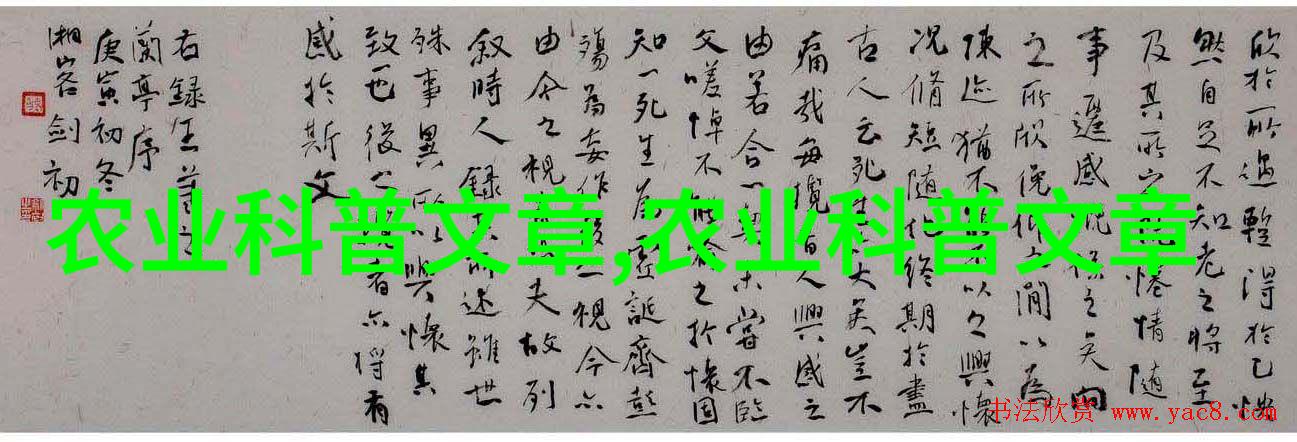 欣於所遇暫得於己快
然自足不知老之將至
及其所之既倦情隨
事遷感慨係之矣向
之所欣俛仰之間以為
陳迹猶不能不以之興懷
況脩短隨化終期於盡
古人云死生亦大矣豈不
痛哉每攬昔人興感之
由若合一契未嘗不臨
文嗟悼不能喻之於懷固
知一死生為虛誕齊彭
殤為妄作後之視今亦
由今之視昔悲夫故列
叙時人錄其所述雖世
殊事異所以興懷其
致一也後之攬者亦將有
感於斯文
右録王羲之
蘭亭序
庚寅初冬
湘客劍初
农业科普文章,农业科普文章
书法欣赏 www.yac8.com